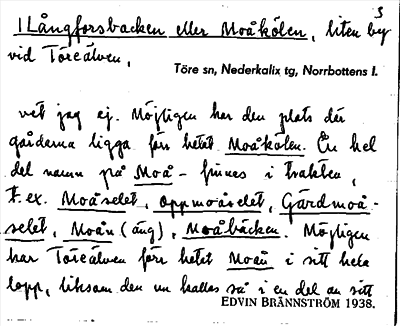 3
1 Långforsbacken eller Moåkölen, liten by
vid Töreälven,
Töre sn, Nederkalix tg, Norrbottens l.
vet jag ej. Möjligen har den plats där
gårdarna ligga förr hetat Moåkölen. En hel
del namn på Moå- finnes i trakten,
t. ex. Moåselet, Oppmoåselet, Gårdmoå-
selet, Moån (äng), Moåbäcken. Möjligen
har Töreälven förr hetat Moån i sitt hela
lopp, liksom den nu kallas så i en del av sitt
EDVIN BRÄNNSTRÖM 1938.